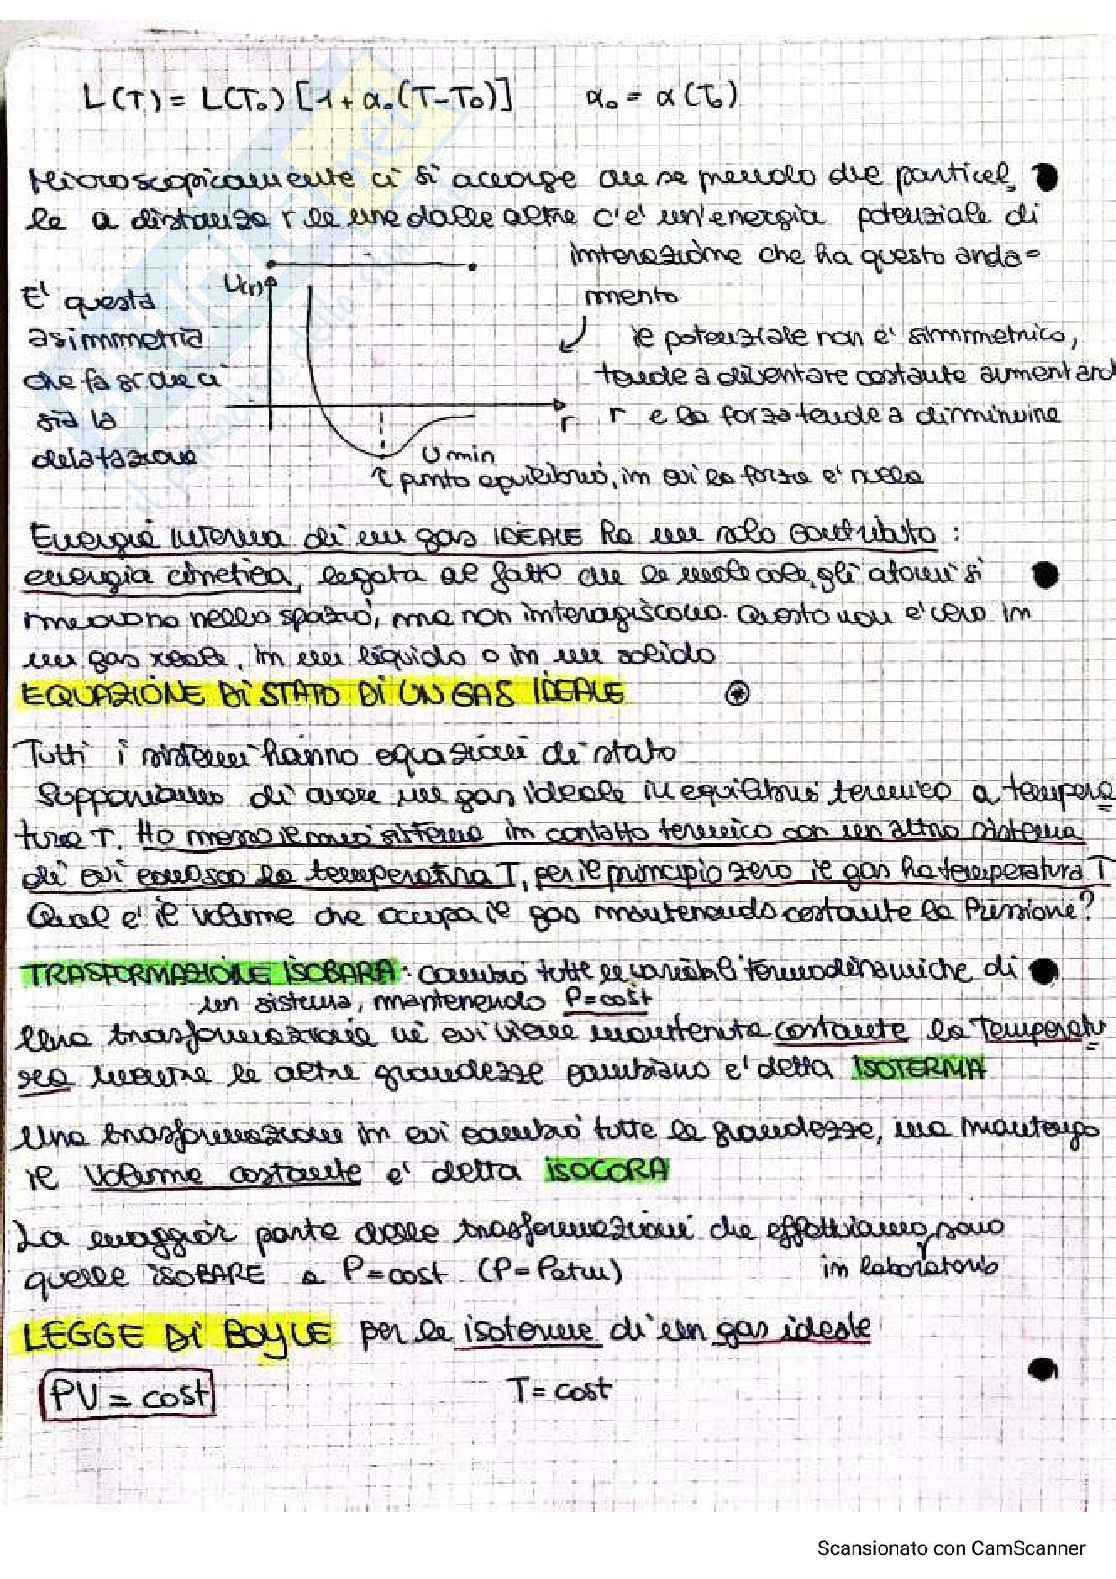 L(T) = L(T₀) [1 + α₀(T-T₀)]     α₀ = α(T₀)
Microscopicamente ci si accorge che se prendo due particel
le a distanza r le une dalle altre c'e' un'energia potenziale di
interazione che ha questo anda-
mento
U(r)
E' questa
asimmetria
che fa si che ci
sia la
dilatazione
il potenziale non e' simmetrico,
tende a diventare costante aumentand
r e la forza tende a diminuire
r
Umin
↑ punto equilibrio, in cui la forza e' nulla
Energia interna di un gas IDEALE ha un solo contributo :
energia cinetica, legata al fatto che le molecole, gli atomi si
muovono nello spazio, ma non interagiscono. Questo non e' vero in
un gas reale, in un liquido o in un solido
EQUAZIONE DI STATO DI UN GAS IDEALE   ⊛
Tutti i sistemi hanno equazioni di stato
Supponiamo di avere un gas ideale in equilibrio termico a tempera
tura T. Ho messo il mio sistema in contatto termico con un altro sistema
di cui conosco la temperatura T, per il principio zero il gas ha temperatura T
Qual e' il volume che occupa il gas mantenendo costante la Pressione?
TRASFORMAZIONE ISOBARA: cambio tutte le variabili termodinamiche di
un sistema, mantenendo P=cost
Una trasformazione in cui viene mantenuta costante la temperatu
ra mentre le altre grandezze cambiano e' detta ISOTERMA
Una trasformazione in cui cambio tutte le grandezze, ma mantengo
il volume costante e' detta ISOCORA
La maggior parte delle trasformazioni che effettuiamo sono
in laboratorio
quelle ISOBARE a P=cost (P=Patm)
LEGGE DI BOYLE per le isoterme di un gas ideale
PV = cost     T = cost
Scansionato con CamScanner